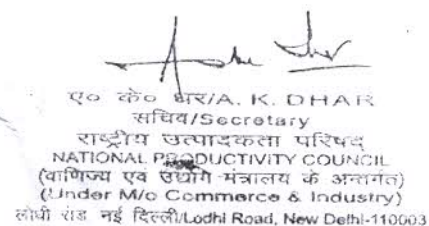 ए० के० धर/A. K. DHAR
सचिव/Secretary
राष्ट्रीय उत्पादकता परिषद्
NATIONAL PRODUCTIVITY COUNCIL
(वाणिज्य एवं उद्योग मंत्रालय के अन्तर्गत)
(Under M/o Commerce & Industry)
लोधी रोड नई दिल्ली/Lodhi Road, New Delhi-110003